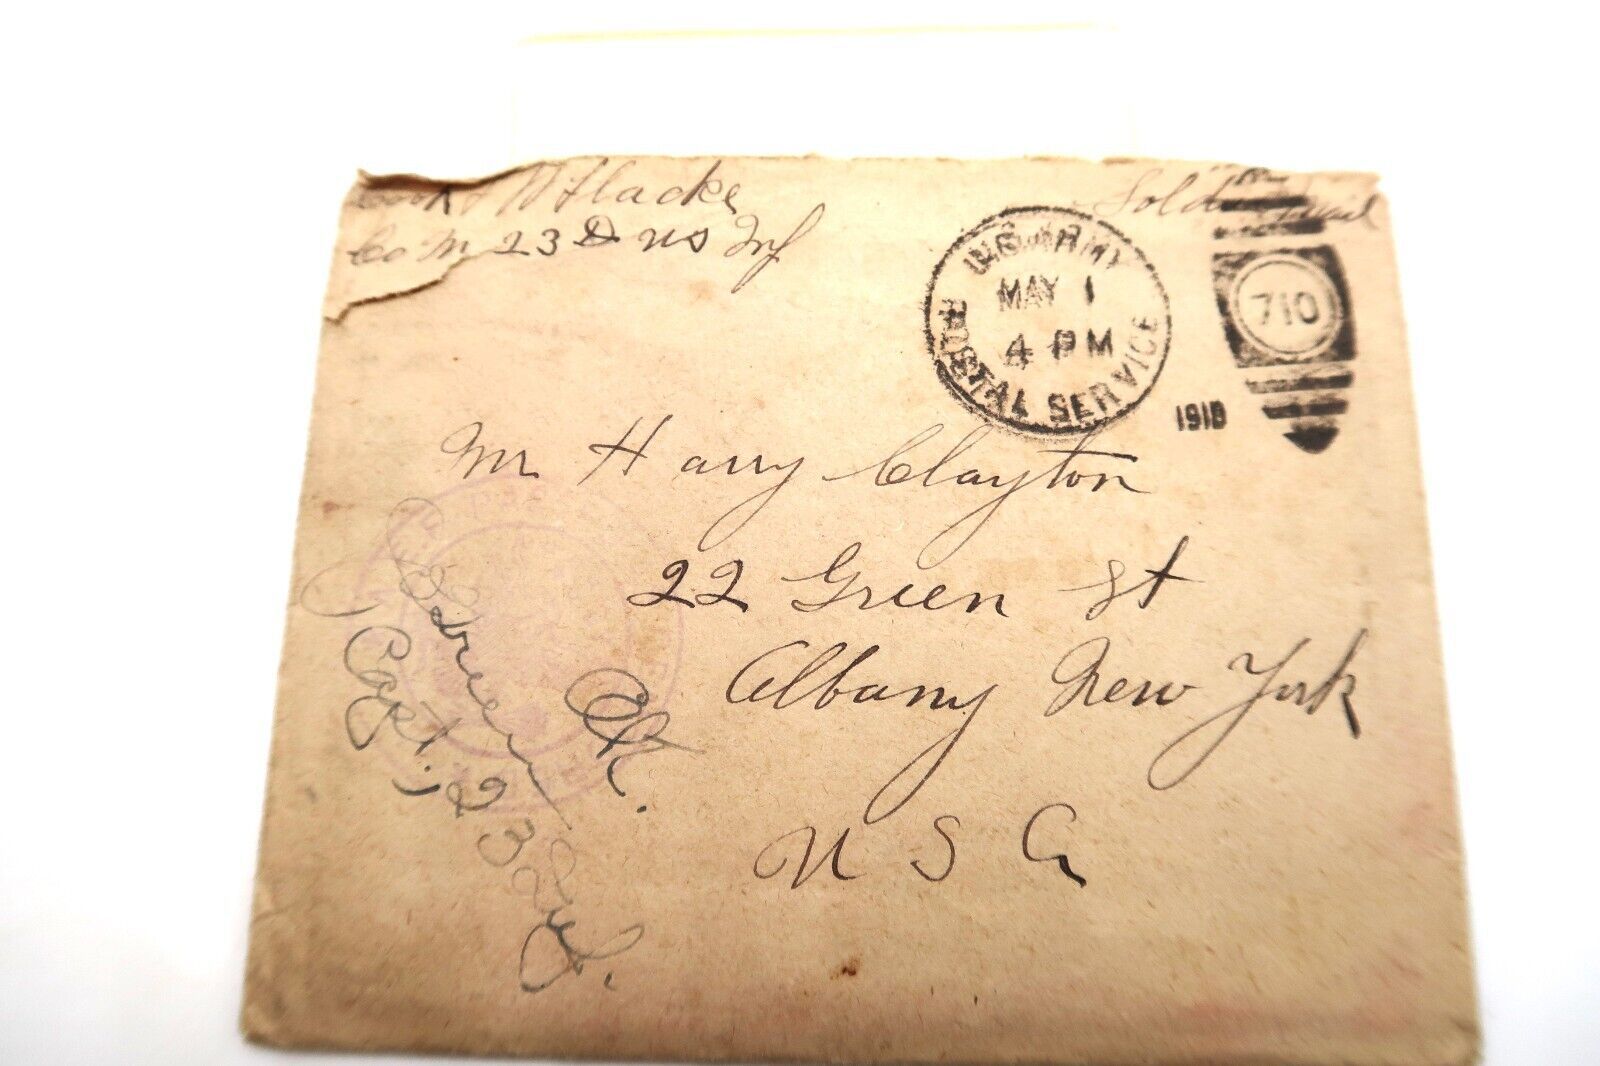 Cook W Flacke
Co M 23D US Inf
Soldiers Mail
U.S. ARMY
MAY 1
4 PM
POSTAL SERVICE
710
1918
Mr Harry Clayton
22 Green St
Albany New York
U S A
OK.
Capt., 23 Inf.